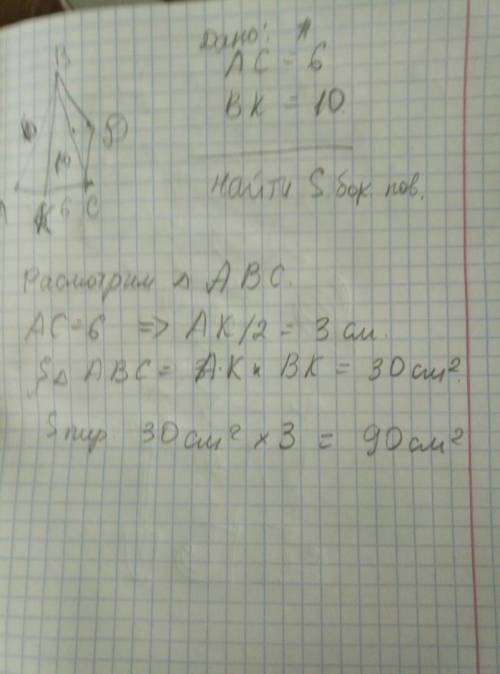 Дано:
AC = 6
BK = 10
Найти S бок пов.
B
10
D
A
K
6
C
Расмотрим △ ABC.
AC=6 => AK/2 = 3 см.
S△ ABC = AK × BK = 30 см².
Sпир 30 см² × 3 = 90 см²